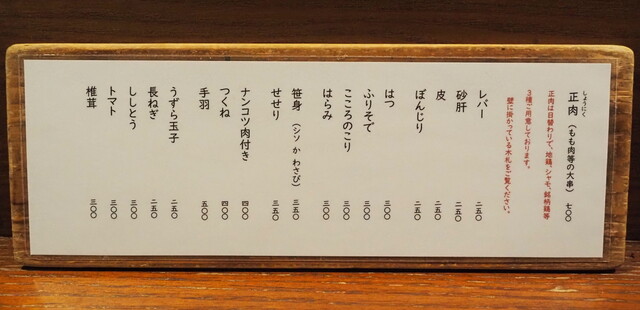 正肉（もも肉等の大串）　七〇〇
しょうにく
正肉は日替わりで、地鶏、シャモ、銘柄鶏等
３種ご用意しております。
壁に掛かっている木札をご覧ください。
レバー　二五〇
砂肝　二五〇
皮　二五〇
ぼんじり　二五〇
はつ　三〇〇
ふりそで　三〇〇
こころのこり　三〇〇
はらみ　三〇〇
笹身（シソ か わさび）　三五〇
せせり　三五〇
ナンコツ肉付き　四〇〇
つくね　四〇〇
手羽　五〇〇
うずら玉子　二五〇
長ねぎ　二五〇
ししとう　三〇〇
トマト　三〇〇
椎茸　三〇〇